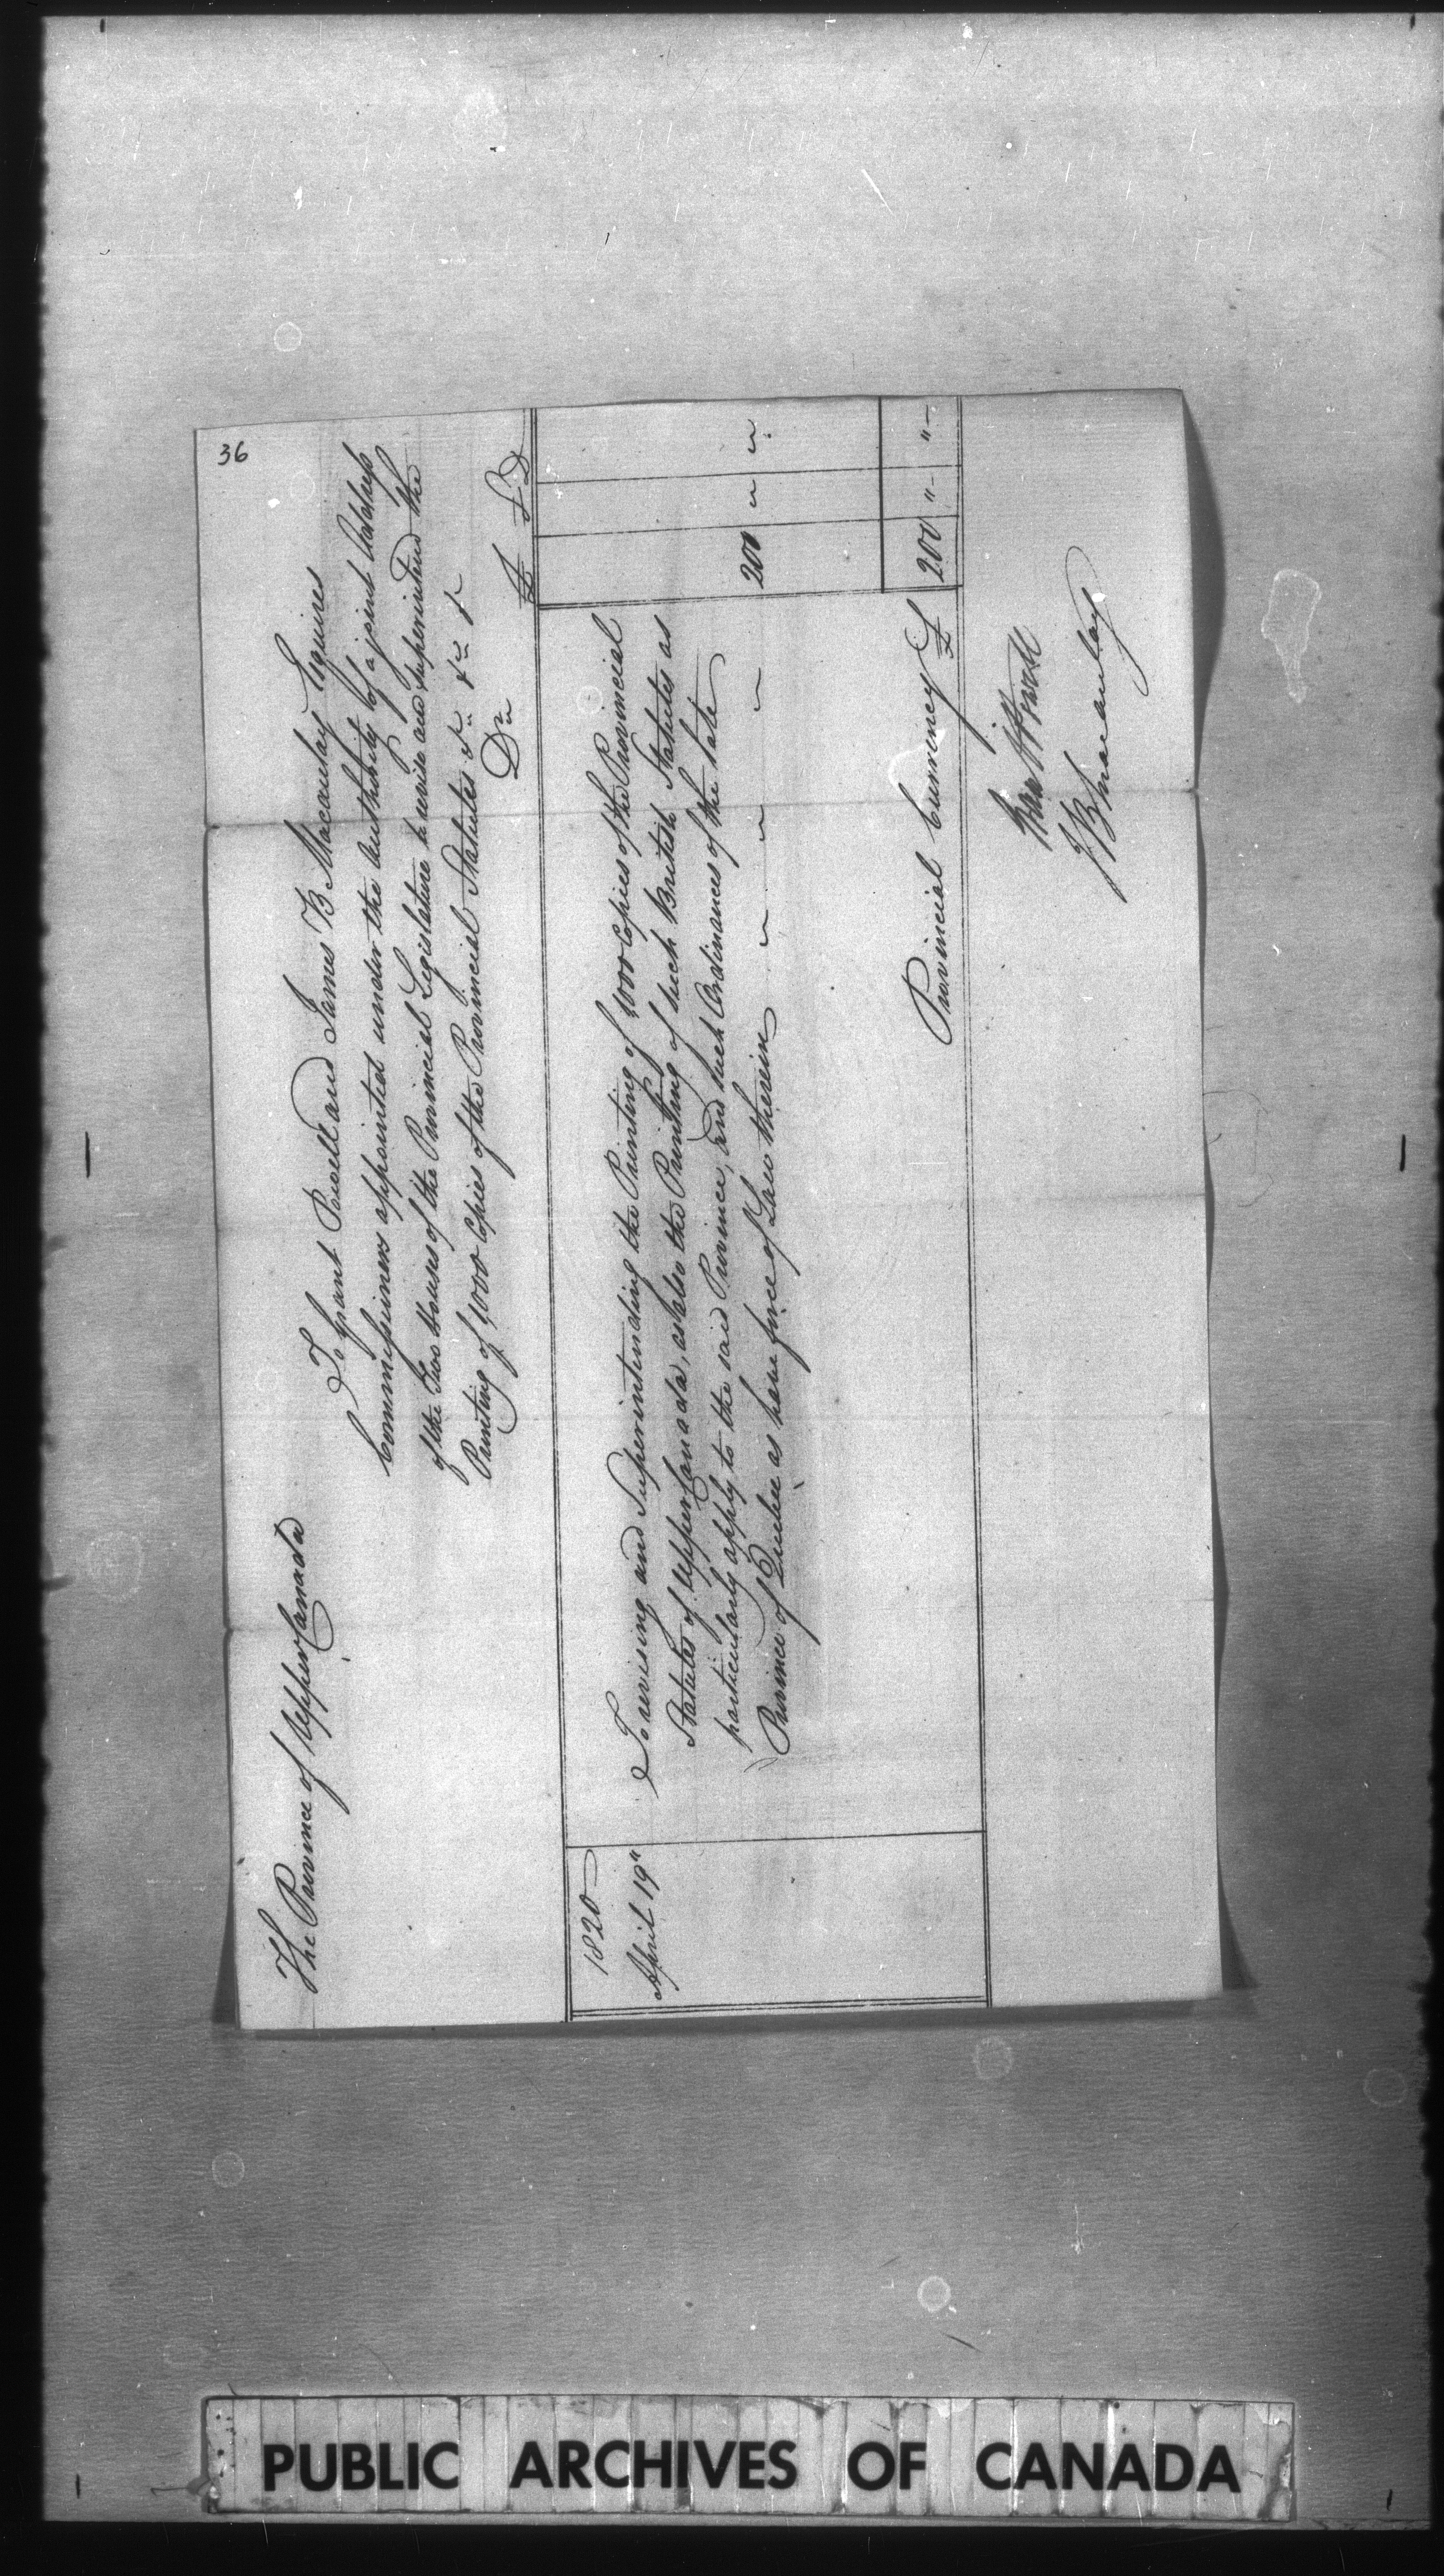 36
The Province of Upper Canada
To Grant Powell and James B Macaulay Esquires
Commissioners appointed under the Authority of a joint Address
of the Two Houses of the Provincial Legislature to revise and superintend the
Printing of 1000 Copies of the Provincial Statutes &c &c &c
Dr
£ S D
1820
April 19" To revising and Superintending the Printing of 1000 Copies of the Provincial
Statutes of Upper Canada, as also the Printing of such British Statutes as
particularly apply to the said Province, and such Ordinances of the late
Province of Quebec as have force of Law therein 200 " "
Provincial Currency £ 200 " - " -
Grant Powell
JB Macaulay
PUBLIC ARCHIVES OF CANADA